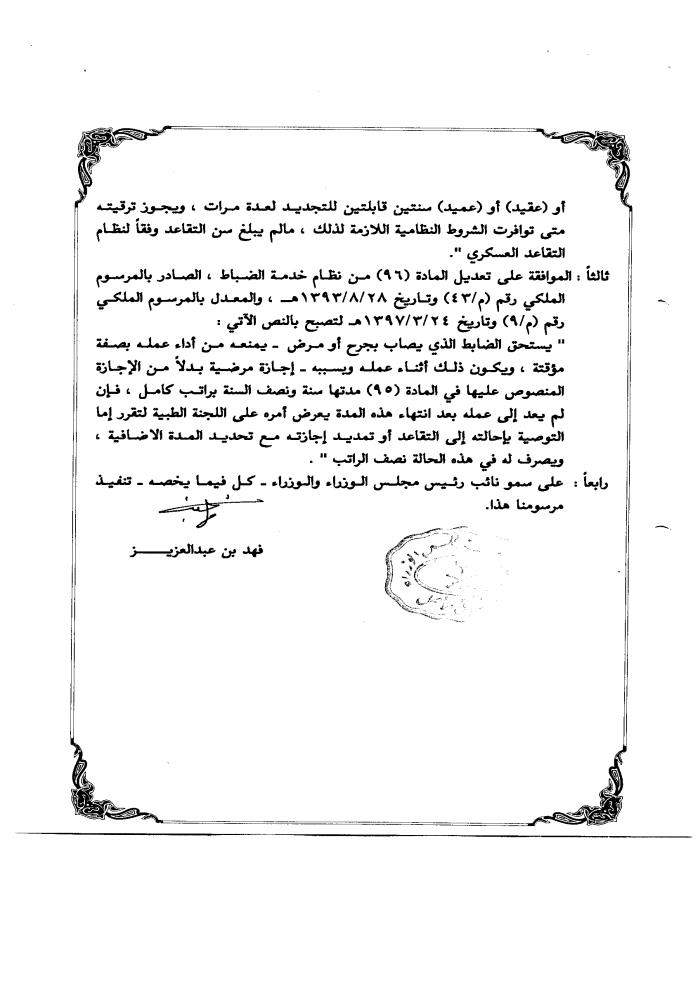 أو (عقيد) أو (عميد) سنتين قابلتين للتجديد لعدة مرات ، ويجوز ترقيته
متى توافرت الشروط النظامية اللازمة لذلك ، مالم يبلغ سن التقاعد وفقاً لنظام
التقاعد العسكري " .
ثالثاً : الموافقة على تعديل المادة (٩٦) من نظام خدمة الضباط ، الصادر بالمرسوم
الملكي رقم (م/٤٣) وتاريخ ١٣٩٣/٨/٢٨هـ ، والمعدل بالمرسوم الملكي
رقم (م/٩) وتاريخ ١٣٩٧/٣/٢٤هـ لتصبح بالنص الآتي :
" يستحق الضابط الذي يصاب بجرح أو مرض - يمنعه من أداء عمله بصفة
مؤقتة ، ويكون ذلك أثناء عمله وبسببه - إجازة مرضية بدلاً من الإجازة
المنصوص عليها في المادة (٩٥) مدتها سنة ونصف السنة براتب كامل ، فإن
لم يعد إلى عمله بعد انتهاء هذه المدة يعرض أمره على اللجنة الطبية لتقرر إما
التوصية بإحالته إلى التقاعد أو تمديد إجازته مع تحديد المدة الاضافية ،
ويصرف له في هذه الحالة نصف الراتب " .
رابعاً : على سمو نائب رئيس مجلس الوزراء والوزراء - كل فيما يخصه - تنفيذ
مرسومنا هذا.
فهد بن عبدالعزيز